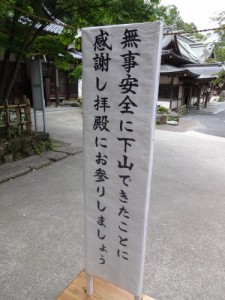 無事安全に下山できたことに
感謝し拝殿にお参りしましょう